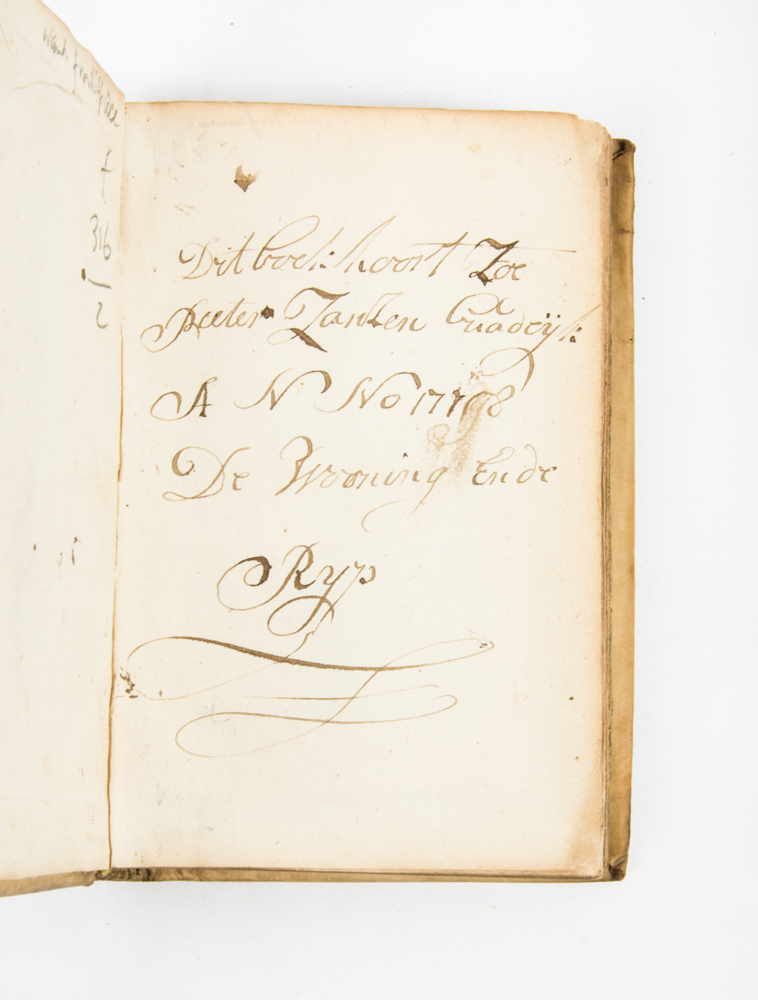 f
316
2
Dit boek: hoort Zoe
Pieter Janszen Quadijk:
A N No 1778
De Wooning Ende
Ryp